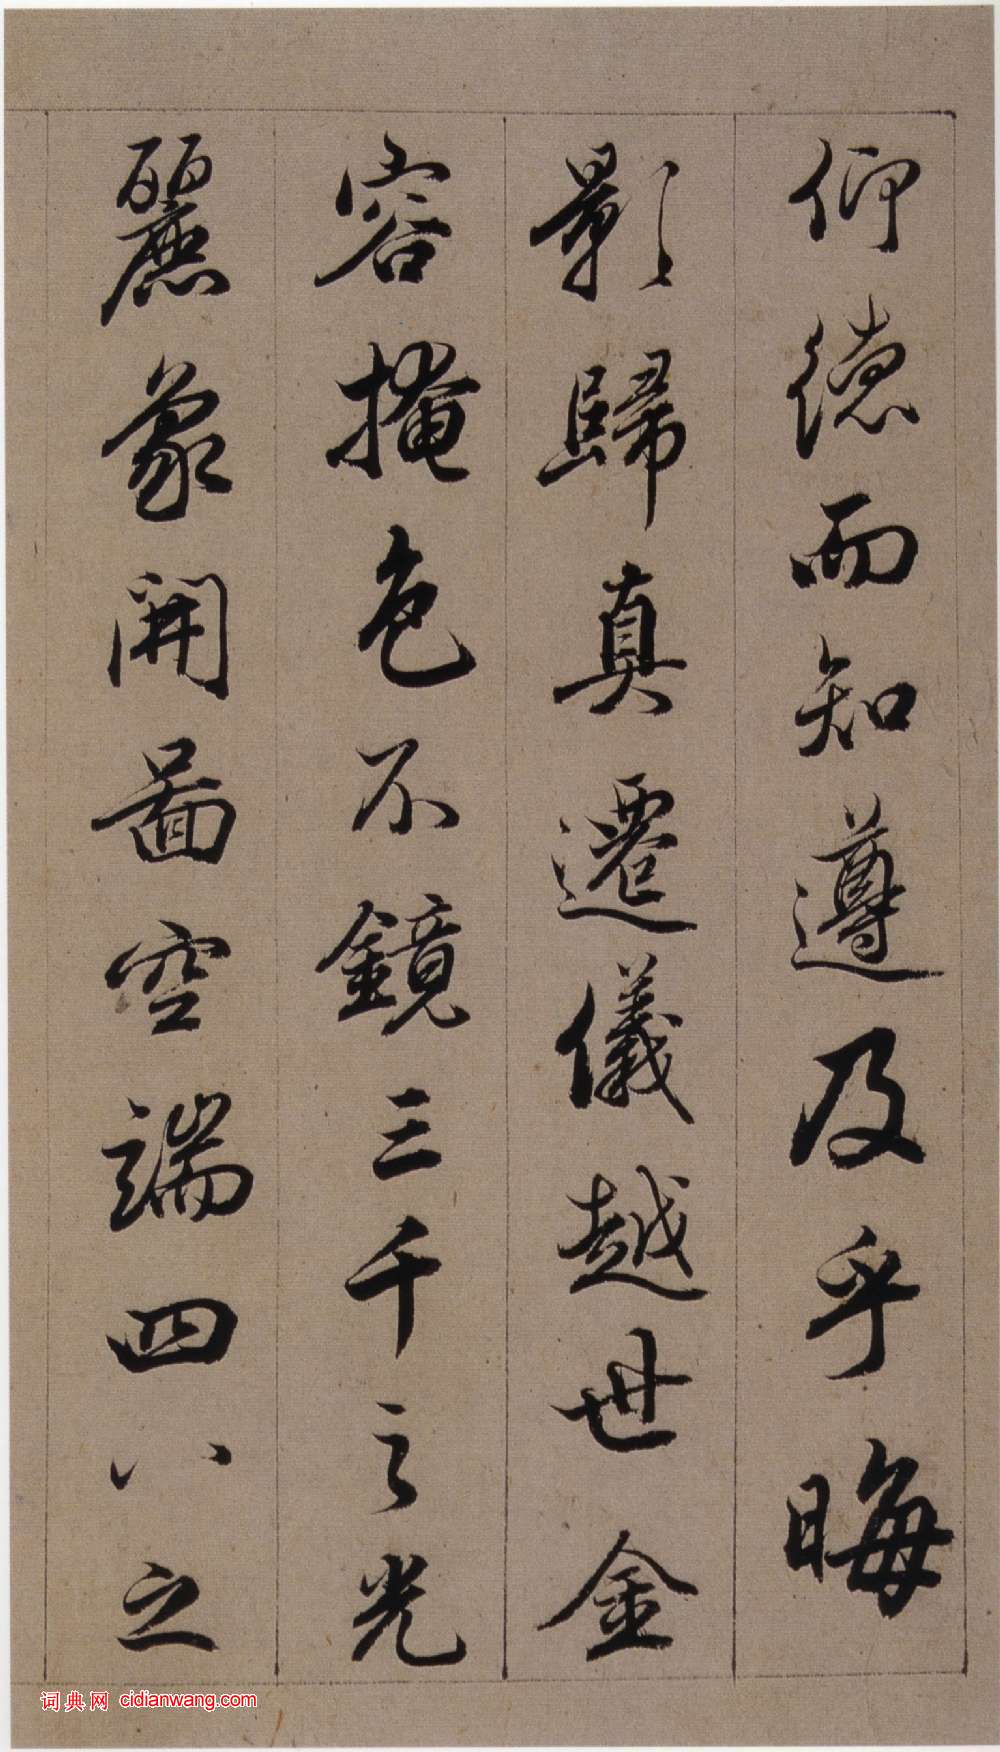 仰德而知遵及乎晦
影歸真遷儀越世金
容掩色不鏡三千之光
麗象開啚空端四八之
词典网 cidianwang.com